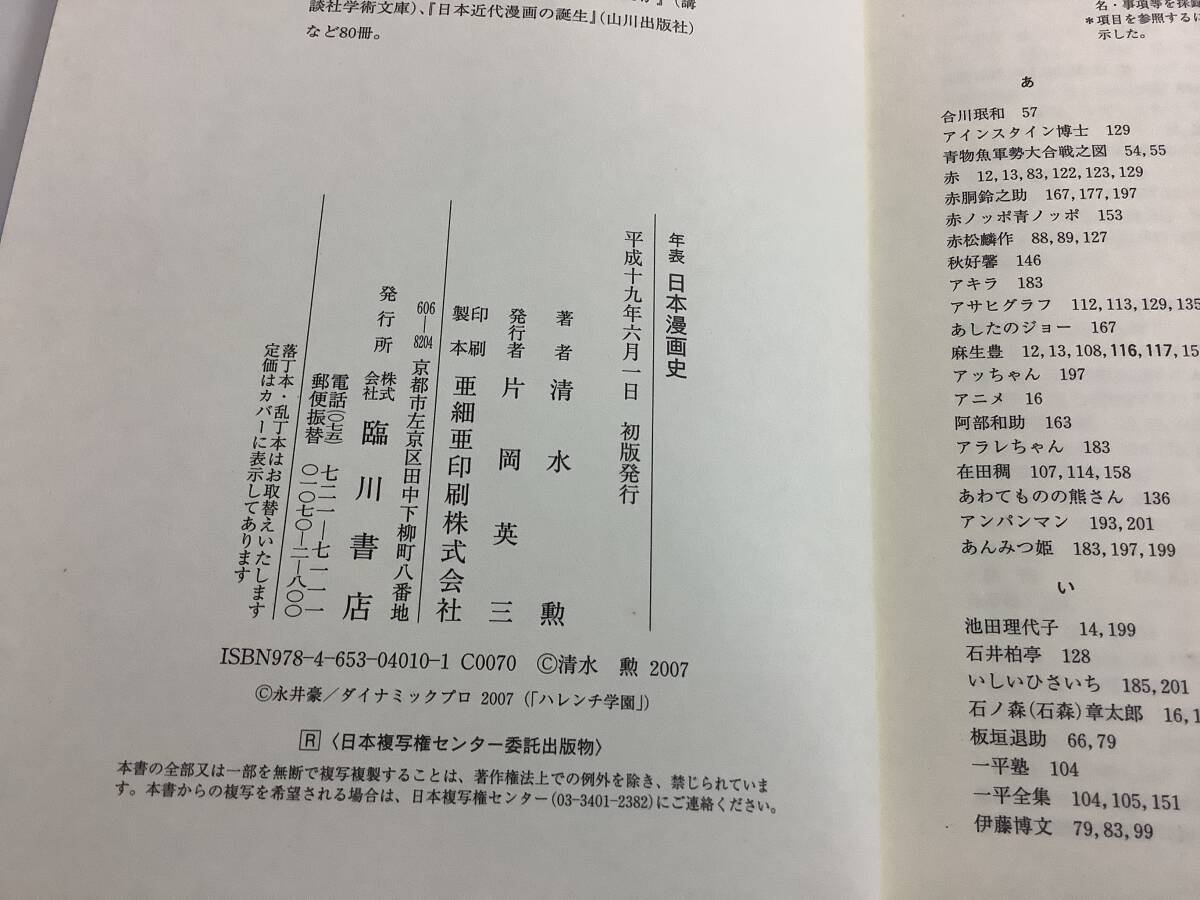 談社学術文庫)、『日本近代漫画の誕生』(山川出版社)
など80冊。
年表 日本漫画史
平成十九年六月一日 初版発行
著者 清水勲
発行者 片岡英三
印刷
製本 亜細亜印刷株式会社
606―8204 京都市左京区田中下柳町八番地
発行所 株式会社 臨川書店
電話(〇七五) 七二一―七一一一
郵便振替 〇一〇七〇―二―八〇〇
落丁本・乱丁本はお取替えいたします
定価はカバーに表示してあります
ISBN978-4-653-04010-1 C0070 ©清水 勲 2007
©永井豪/ダイナミックプロ 2007 (「ハレンチ学園」)
R 〈日本複写権センター委託出版物〉
本書の全部又は一部を無断で複写複製することは、著作権法上での例外を除き、禁じられていま
す。本書からの複写を希望される場合は、日本複写権センター(03-3401-2382)にご連絡ください。
名・事項等を採録
*項目を参照するに
示した。
あ
合川珉和 57
アインスタイン博士 129
青物魚軍勢大合戦之図 54,55
赤 12,13,83,122,123,129
赤胴鈴之助 167,177,197
赤ノッポ青ノッポ 153
赤松麟作 88,89,127
秋好馨 146
アキラ 183
アサヒグラフ 112,113,129,135
あしたのジョー 167
麻生豊 12,13,108,116,117,15
アッちゃん 197
アニメ 16
阿部和助 163
アラレちゃん 183
在田稠 107,114,158
あわてものの熊さん 136
アンパンマン 193,201
あんみつ姫 183,197,199
い
池田理代子 14,199
石井柏亭 128
いしいひさいち 185,201
石ノ森(石森)章太郎 16,1
板垣退助 66,79
一平塾 104
一平全集 104,105,151
伊藤博文 79,83,99